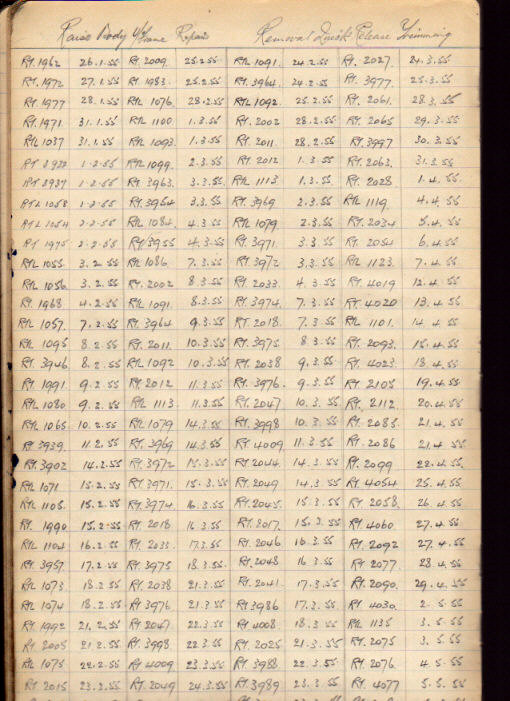 Raise Body Frame Repair Removal Quick Release Trimming
RT. 1962 26.1.55 RT 2009. 25.2.55 RTL 1091. 24.2.55 RT. 2027. 24.3.55
RT. 1972 27.1.55 RT 1983. 25.2.55 RT. 3964. 24.2.55 RT. 3977. 25.3.55
RT. 1977 28.1.55 RTL 1076. 28.2.55 RTL 1092. 25.2.55 RT. 2061. 28.3.55
RT. 1971. 31.1.55 RTL 1100 1.3.55 RT. 2002 28.2.55 RT 2065 29.3.55
RTL 1037 31.1.55 RTL 1093. 1.3.55 RT. 2011. 28.2.55 RT 3997 30.3.55
1.2.55 RTL 1099. 2.3.55 RT. 2012 1.3.55 RT. 2063. 31.3.55
RT 3937 1.2.55 RT. 3963. 3.3.55 RTL 1113 1.3.55 RT. 2028 1.4.55
RTL 1058 1.2.55 RT. 3954 3.3.55 RT. 3969 2.3.55 RTL 1119 4.4.55
RTL 1054 2.2.55 RTL 1084. 4.3.55 RTL 1079 2.3.55 RT. 2034 5.4.55
RT 1975 2.2.55 RT 3955 4.3.55 RT. 3971. 3.3.55 RT. 2054 6.4.55
RTL 1055. 3.2.55 RTL 1086. 7.3.55 RT. 3972 3.3.55 RTL 1123. 7.4.55
RTL 1056. 3.2.55 RT. 2002 8.3.55 RT. 2033. 4.3.55 RT. 4019 12.4.55
RT. 1968 4.2.55 RTL 1091. 8.3.55 RT. 3974. 7.3.55 RT. 4020 13.4.55
RTL 1057. 7.2.55 RT. 3964 9.3.55 RT. 2018. 7.3.55 RTL 1101. 14.4.55
RTL 1095 8.2.55 RT. 2011. 10.3.55 RT. 3975 8.3.55 RT. 2093. 15.4.55
RT. 3946. 8.2.55 RTL 1092 10.3.55 RT. 2038 9.3.55 RT. 4023 18.4.55
RT. 1991 9.2.55 RT 2012 11.3.55 RT. 3976. 9.3.55 RT 2105 19.4.55
RTL 1080 9.2.55 RTL 1113 11.3.55 RT. 2047 10.3.55 RT. 2112 20.4.55
RTL 1065 10.2.55 RTL 1079 14.3.55 RT. 3998 10.3.55 RT. 2085. 21.4.55
RT. 3939. 11.2.55 RT. 3969 14.3.55 RT 4009 11.3.55 RT. 2086 21.4.55
RT. 3902 14.2.55 RT. 3972 15.3.55 RT. 2044. 14.3.55 RT. 2099 22.4.55
RTL 1071 15.2.55 RT. 3971. 15.3.55 RT. 2049 14.3.55 RT 4054 25.4.55
RTL 1105. 15.2.55 RT. 3974. 16.3.55 RT. 2045. 15.3.55 RT. 2058. 26.4.55
RT. 1990 15.2.55 RT. 2018 16.3.55 RT. 2017. 15.3.55 RT. 4060. 27.4.55
RTL 1104 16.2.55 RT. 2033. 17.3.55 RT. 2046 16.3.55 RT. 2092 27.4.55
RT. 3957 17.2.55 RT. 3975 18.3.55 RT. 2048 16.3.55 RT 2077. 28.4.55
RTL 1073 18.2.55 RT. 2038 21.3.55 RT. 2041. 17.3.55 RT. 2090. 29.4.55
RTL 1074 18.2.55 RT. 3976 21.3.55 RT. 3986 17.3.55 RT. 4030. 2.5.55
RT. 1992 21.2.55 RT. 2047 22.3.55 RT 4008 18.3.55 RTL 1135 3.5.55
RT. 2005 21.2.55 RT. 3998 22.3.55 RT. 2025 21.3.55 RT. 2075 3.5.55
RTL 1075 22.2.55 RT. 4009 23.3.55 RT 3988 22.3.55 RT. 2076. 4.5.55
RT. 2015 23.2.55 RT. 2049 24.3.55 RT. 3989 23.3.55 RT. 4077 5.5.55